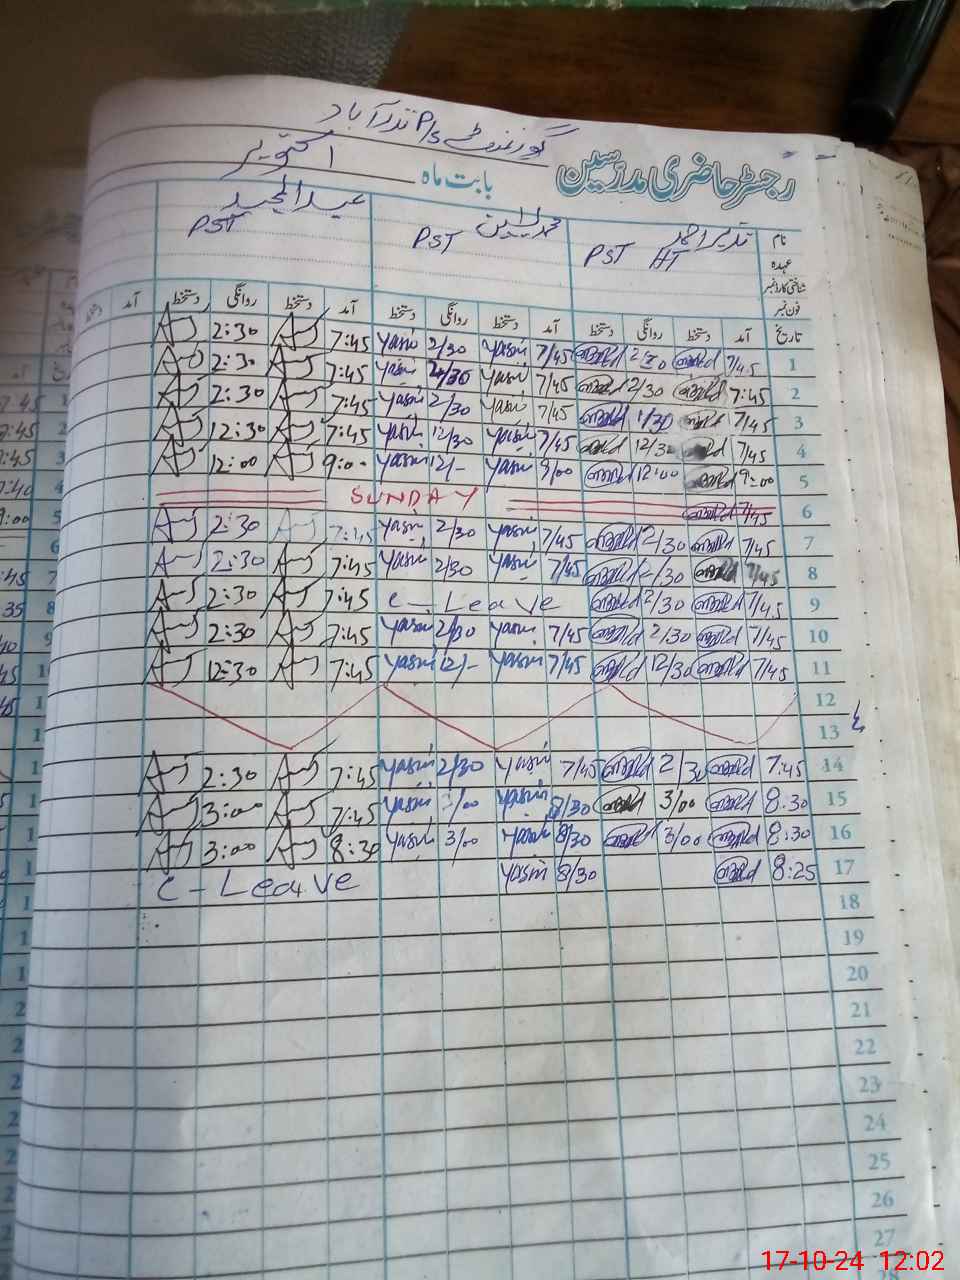 گورنمنٹ P/S نذرآباد
رجسٹر حاضری مدرسین بابت ماہ اکتوبر
نام نذیر احمد محمد یٰسین عبدالمجید
عہدہ PST HT PST PST
شناختی کارڈ نمبر
فون نمبر
تاریخ آمد دستخط روانگی دستخط آمد دستخط روانگی دستخط آمد دستخط روانگی دستخط آمد دستخط
1 7/45 2/30 7/45 Yasin 2/30 Yasin 7:45 2:30
2 7:45 2/30 7/45 Yasin 2/30 Yasin 7:45 2:30
3 7/45 1/30 7/45 Yasin 2/30 Yasin 7:45 2:30
4 7/45 12/30 7/45 Yasin 12/30 Yasin 7:45 12:30
5 9:00 12:00 9/00 Yasin 12/- Yasin 9:00 12:00
6 7/45 SUNDAY
7 7/45 2/30 7/45 Yasin 2/30 Yasin 7:45 2:30
8 7/45 2/30 7/45 Yasin 2/30 Yasin 7:45 2:30
9 7/45 2/30 C-Leave 7:45 2:30
10 7/45 2/30 7/45 Yasin 2/30 Yasin 7:45 2:30
11 7/45 12/30 7/45 Yasin 12/- Yasin 7:45 12:30
12
13
14 7:45 2/30 7/45 Yasin 2/30 Yasin 7:45 2:30
15 8:30 3/00 8/30 Yasin 3/00 Yasin 7:45 3:00
16 8:30 3/00 8/30 Yasin 3/00 Yasin 8:30 3:00
17 8:25 8/30 Yasin C-Leave
18
19
20
21
22
23
24
25
26
27
17-10-24 12:02